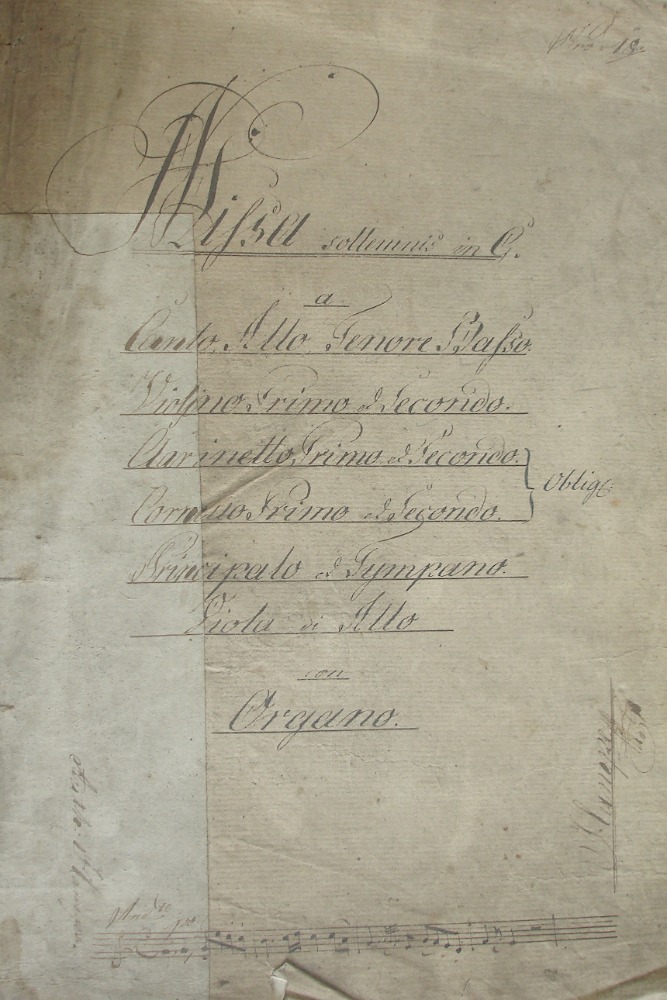 Missa sollemnis in G.
a
Canto, Alto, Tenore Basso.
Violino Primo ed Secondo.
Clarinetto Primo ed Secondo.
Oblig:
Cornuo Primo ed Secondo.
Principalo ed Tympano.
Viola di Alto
con
Organo.